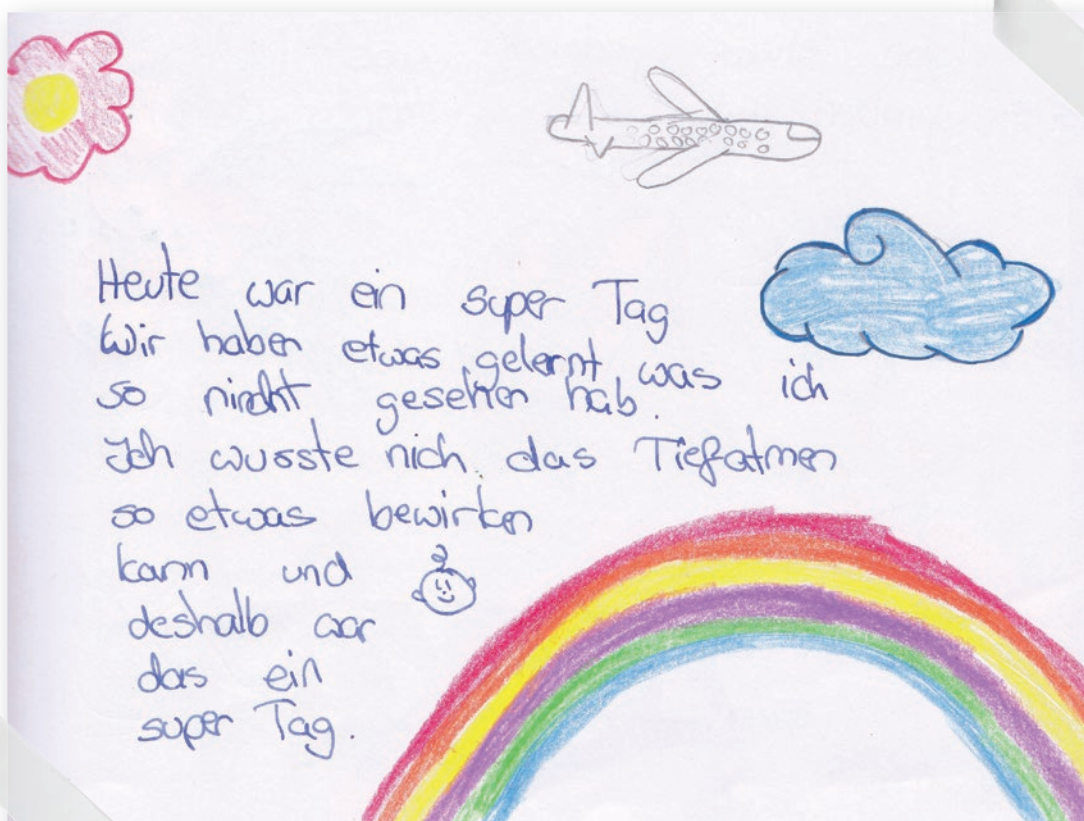 Heute war ein super Tag
Wir haben etwas gelernt was ich
so nircht gesehen hab.
Ich wusste nich das Tiefatmen
so etwas bewirken
kann und
deshalb war
das ein
super Tag.